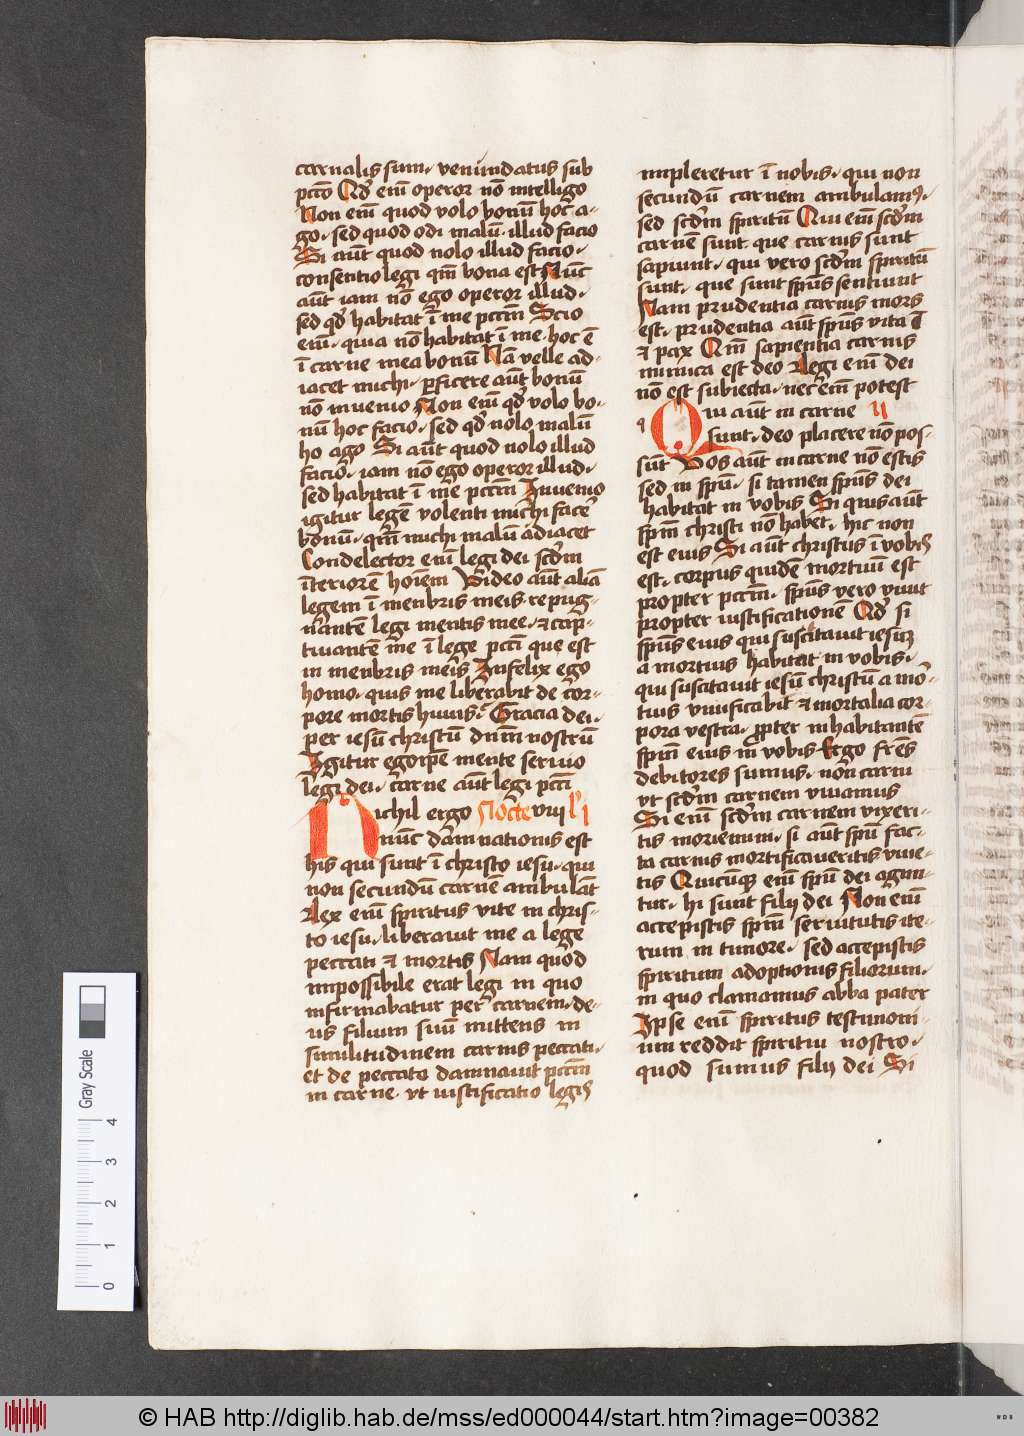 carnalis sum· venundatus sub
pctō Qd̄ enī operor nō intelligo
Non enī quod volo bonū hoc a-
go· sed quod odi malū· illud facio
Si aūt quod nolo illud facio·
consentio legi qm̄ bona est Nūc
aūt iam nō ego operor illud·
sed qd̄ habitat ī me pctm̄ Scio
enī· quia nō habitat ī me· hoc ē
ī carne mea bonū Nā velle ad-
iacet michi· perficere aūt bonū
nō inuenio Non enī qd̄ volo bo-
nū hoc facio· sed qd̄ nolo malū
ho ago Si aūt quod nolo illud
facio· iam nō ego operor illud·
sed habitat ī me pctm̄ Inuenio
igitur legē volenti michi face᷑
bonū· qm̄ michi malū adiacet
Condelector enī legi dei scd̄m
īteriorē hoīem Video aūt aliā
legem ī menbris meis repug-
nantē legi mentis mee· et cap-
tiuantē me ī lege pcti que est
in menbris meis Infelix ego
homo· quis me liberabit de cor-
pore mortis huius· Gracia dei·
per iesū christū dn̄m nostrū
Igitur ego ip̄e mente seruio
legi dei· carne aūt legi pcti
Nichil ergo Nocte viij l' i
nūc damnationis est
his qui sunt ī christo iesu· qui
non secundū carnē ambulāt
Lex enī spiritus vite in chris-
to iesu· liberauit me a lege
peccati et mortis Nam quod
impossibile erat legi in quo
infirmabatur per carnem· de-
us filium suū mittens in
similitudinem carnis peccati·
et de peccato damnauit pctm̄
in carne· vt iustificatio legis
impleretur ī nobis· qui non
secundū carnem ambulamꝰ·
sed scd̄m spiritū Qui enī scd̄m
carnē sunt que carnis sunt
sapiunt· qui vero scd̄m spiritū
sunt· que sunt spūs sentiunt
Nam prudentia carnis mors
est· prudentia aūt spūs vita
et pax Qm̄ sapientia carnis
inimica est deo Legi enī dei
nō est subiecta· nec enī potest
Qui aūt in carne ij
sunt· deo placere nō pos-
sūt Vos aūt in carne nō estis
sed in spū· si tamen spūs dei
habitat in vobis Si quis aūt
spm̄ christi nō habet· hic non
est eius Si aūt christus ī vobis
est· corpus quidē mortuū est
propter pctm̄· spūs vero viuit
propter iustificationē Qd̄ si
spūs eius qui suscitauit iesum
a mortuis habitat in vobis·
qui suscitauit iesū christū a mor-
tuis viuificabit et mortalia cor-
pora vestra· propter inhabitantē
spm̄ eius in vobis Ergo frēs
debitores sumus· non carni
vt scd̄m carnem viuamus
Si enī scd̄m carnem vixeri-
tis moriemini· si aūt spū fac-
ta carnis mortificaueritis viue-
tis Quicūqꝫ enī spū dei agun-
tur· hi sunt filij dei Non enī
accepistis spm̄ seruitutis ite-
rum in timore· sed accepistis
spiritum adoptionis filiorum·
in quo clamamus abba pater
Ipse enī spiritus testimoni-
um reddit spiritui nostro·
quod sumus filij dei Si
Gray Scale
0 1 2 3 4
© HAB http://diglib.hab.de/mss/ed000044/start.htm?image=00382